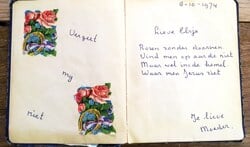 Vergeet
mij
niet
8-10-1974
Lieve Elsje
Rozen zonder doornen
Vind men op aarde niet
Maar wel in de hemel
Waar men Jezus ziet
Je lieve
Moeder.